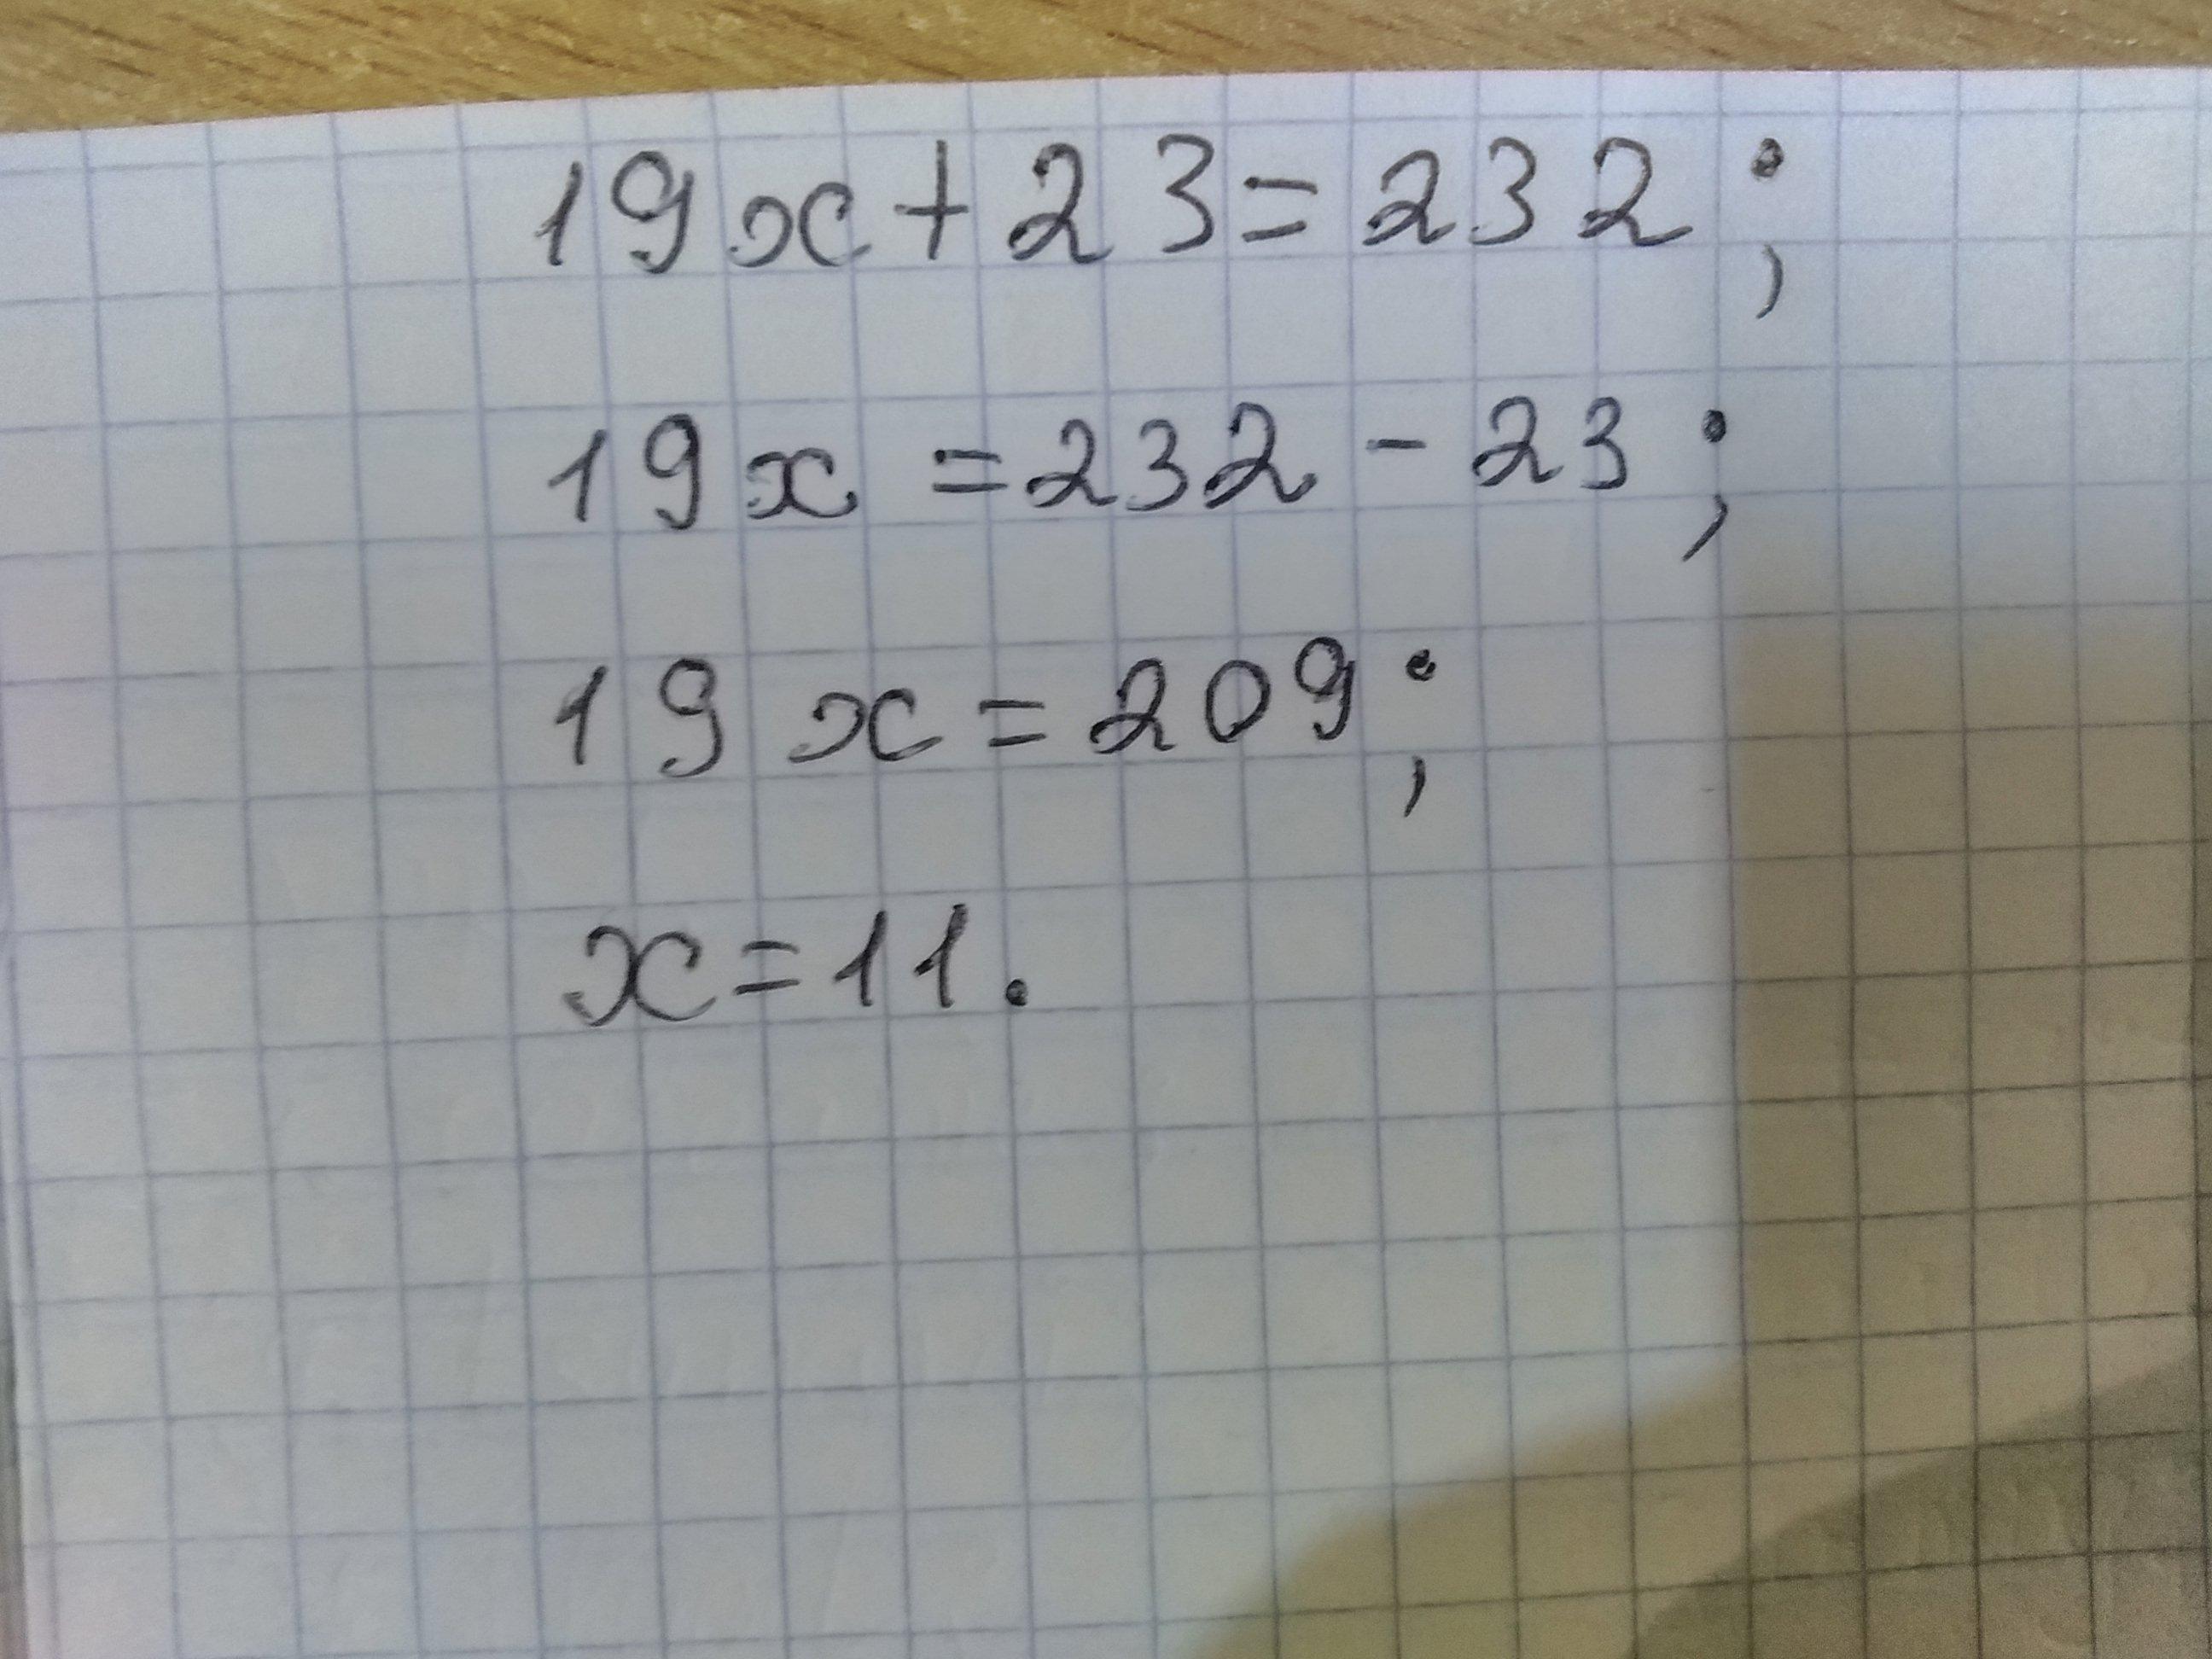 19x+23=232;
19x=232-23;
19x=209;
x=11.